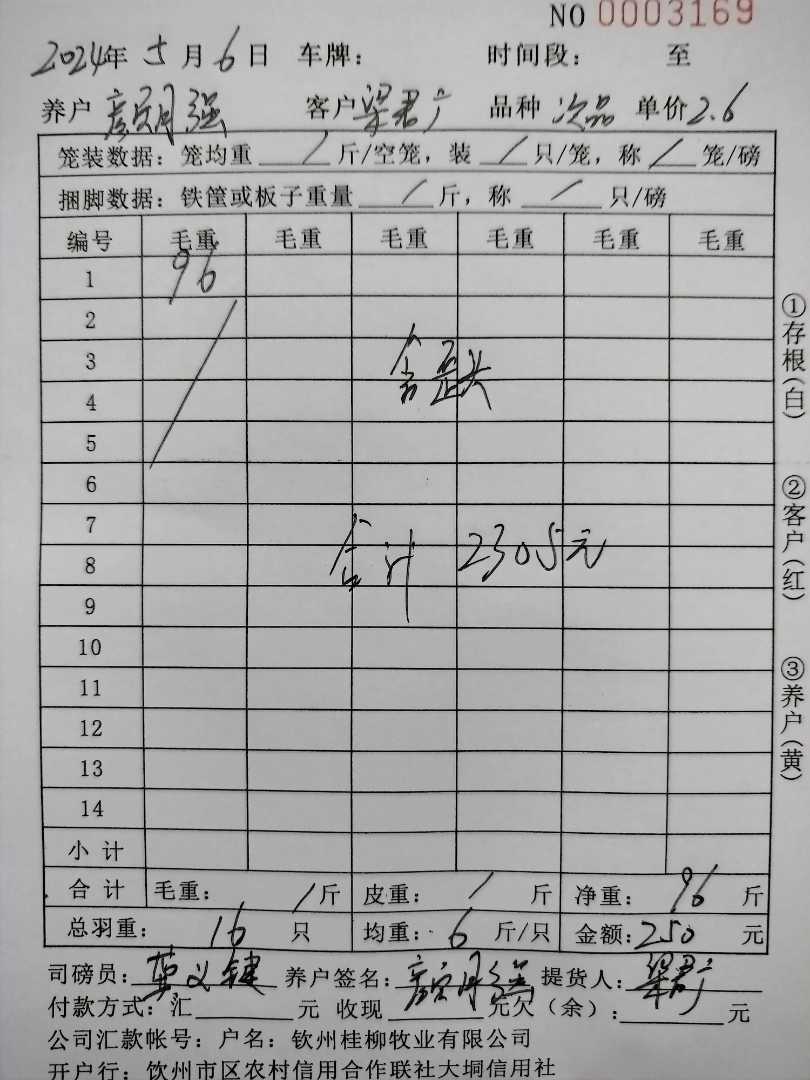 NO 0003169
2024年 5月 6日 车牌： 时间段： 至
养户 彦明强 客户 梁君广 品种 次品 单价2.6
笼装数据：笼均重 / 斤/空笼，装 / 只/笼，称 / 笼/磅
捆脚数据：铁筐或板子重量 / 斤，称 / 只/磅
编号 毛重 毛重 毛重 毛重 毛重 毛重
1 96
2
3 含歪头
4
5
6
7
8 合计 2305元
9
10
11
12
13
14
小计
合计 毛重： / 斤 皮重： / 斤 净重： 96 斤
总羽重： 16 只 均重： 6 斤/只 金额：250 元
司磅员： 养户签名： 强 提货人：梁君广
付款方式：汇 元 收现 元欠（余）： 元
公司汇款帐号：户名：钦州桂柳牧业有限公司
开户行：钦州市区农村信用合作联社大垌信用社
①存根（白）
②客户（红）
③养户（黄）